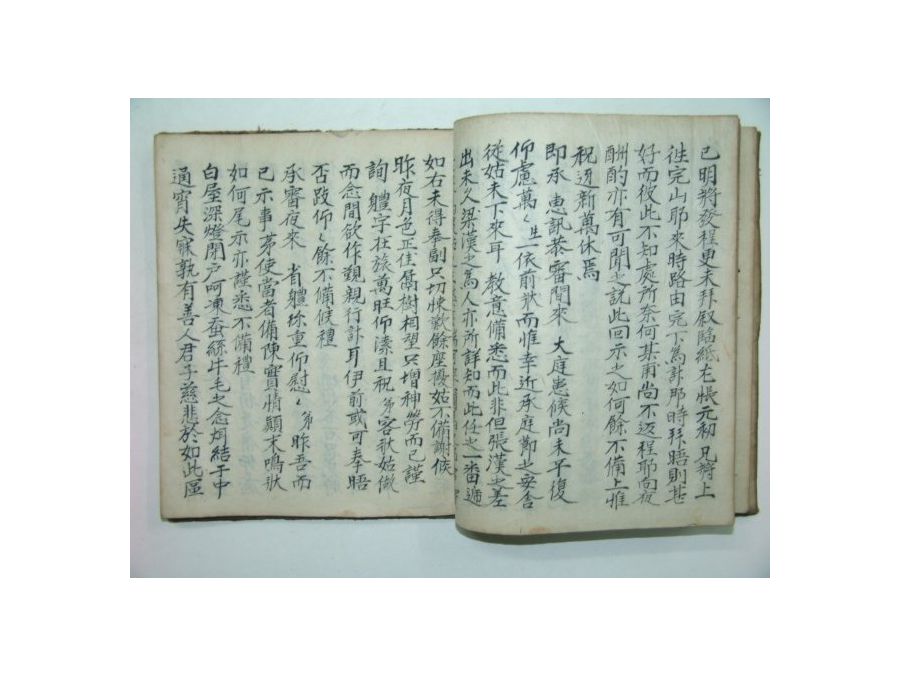 已明將發程更未拜敍臨紙尤悵元初兄猗上
徃完山耶來時路由完下爲計那時拜晤則甚
好而彼此不知處所奈何某甫尚不迈程耶向夜
酬酌亦有可聞之說此回示之如何餘不備上惟
祝迓新萬休焉
即承 惠訊恭審間來 大庭患候尚未平復
仰慮萬〻生一依前狀而惟幸近承庭節之安舍
從姑未下來耳 教意備悉而此非但張漢之差
出未久梁漢之爲人亦所詳知而此任之一番遞
如右未得奉副只切悚歎餘座擾姑不備謝候
昨夜月色正佳喬樹相望只增神勞而已謹
詢 軆字在旅萬旺仰溱且祝弟客狀姑倣
而念間欲作覲親行計耳伊前或可奉晤
否跂仰〻餘不備候禮
承審夜來 省軆珎重仰慰〻弟昨吾而
已示事茅使當者備陳實情顚末鳴狀
如何尾示亦謹悉不備禮
白屋深燈閉戶呵凍蚕絲牛毛之念炯結于中
通宵失寐孰有善人君子慈悲於如此區